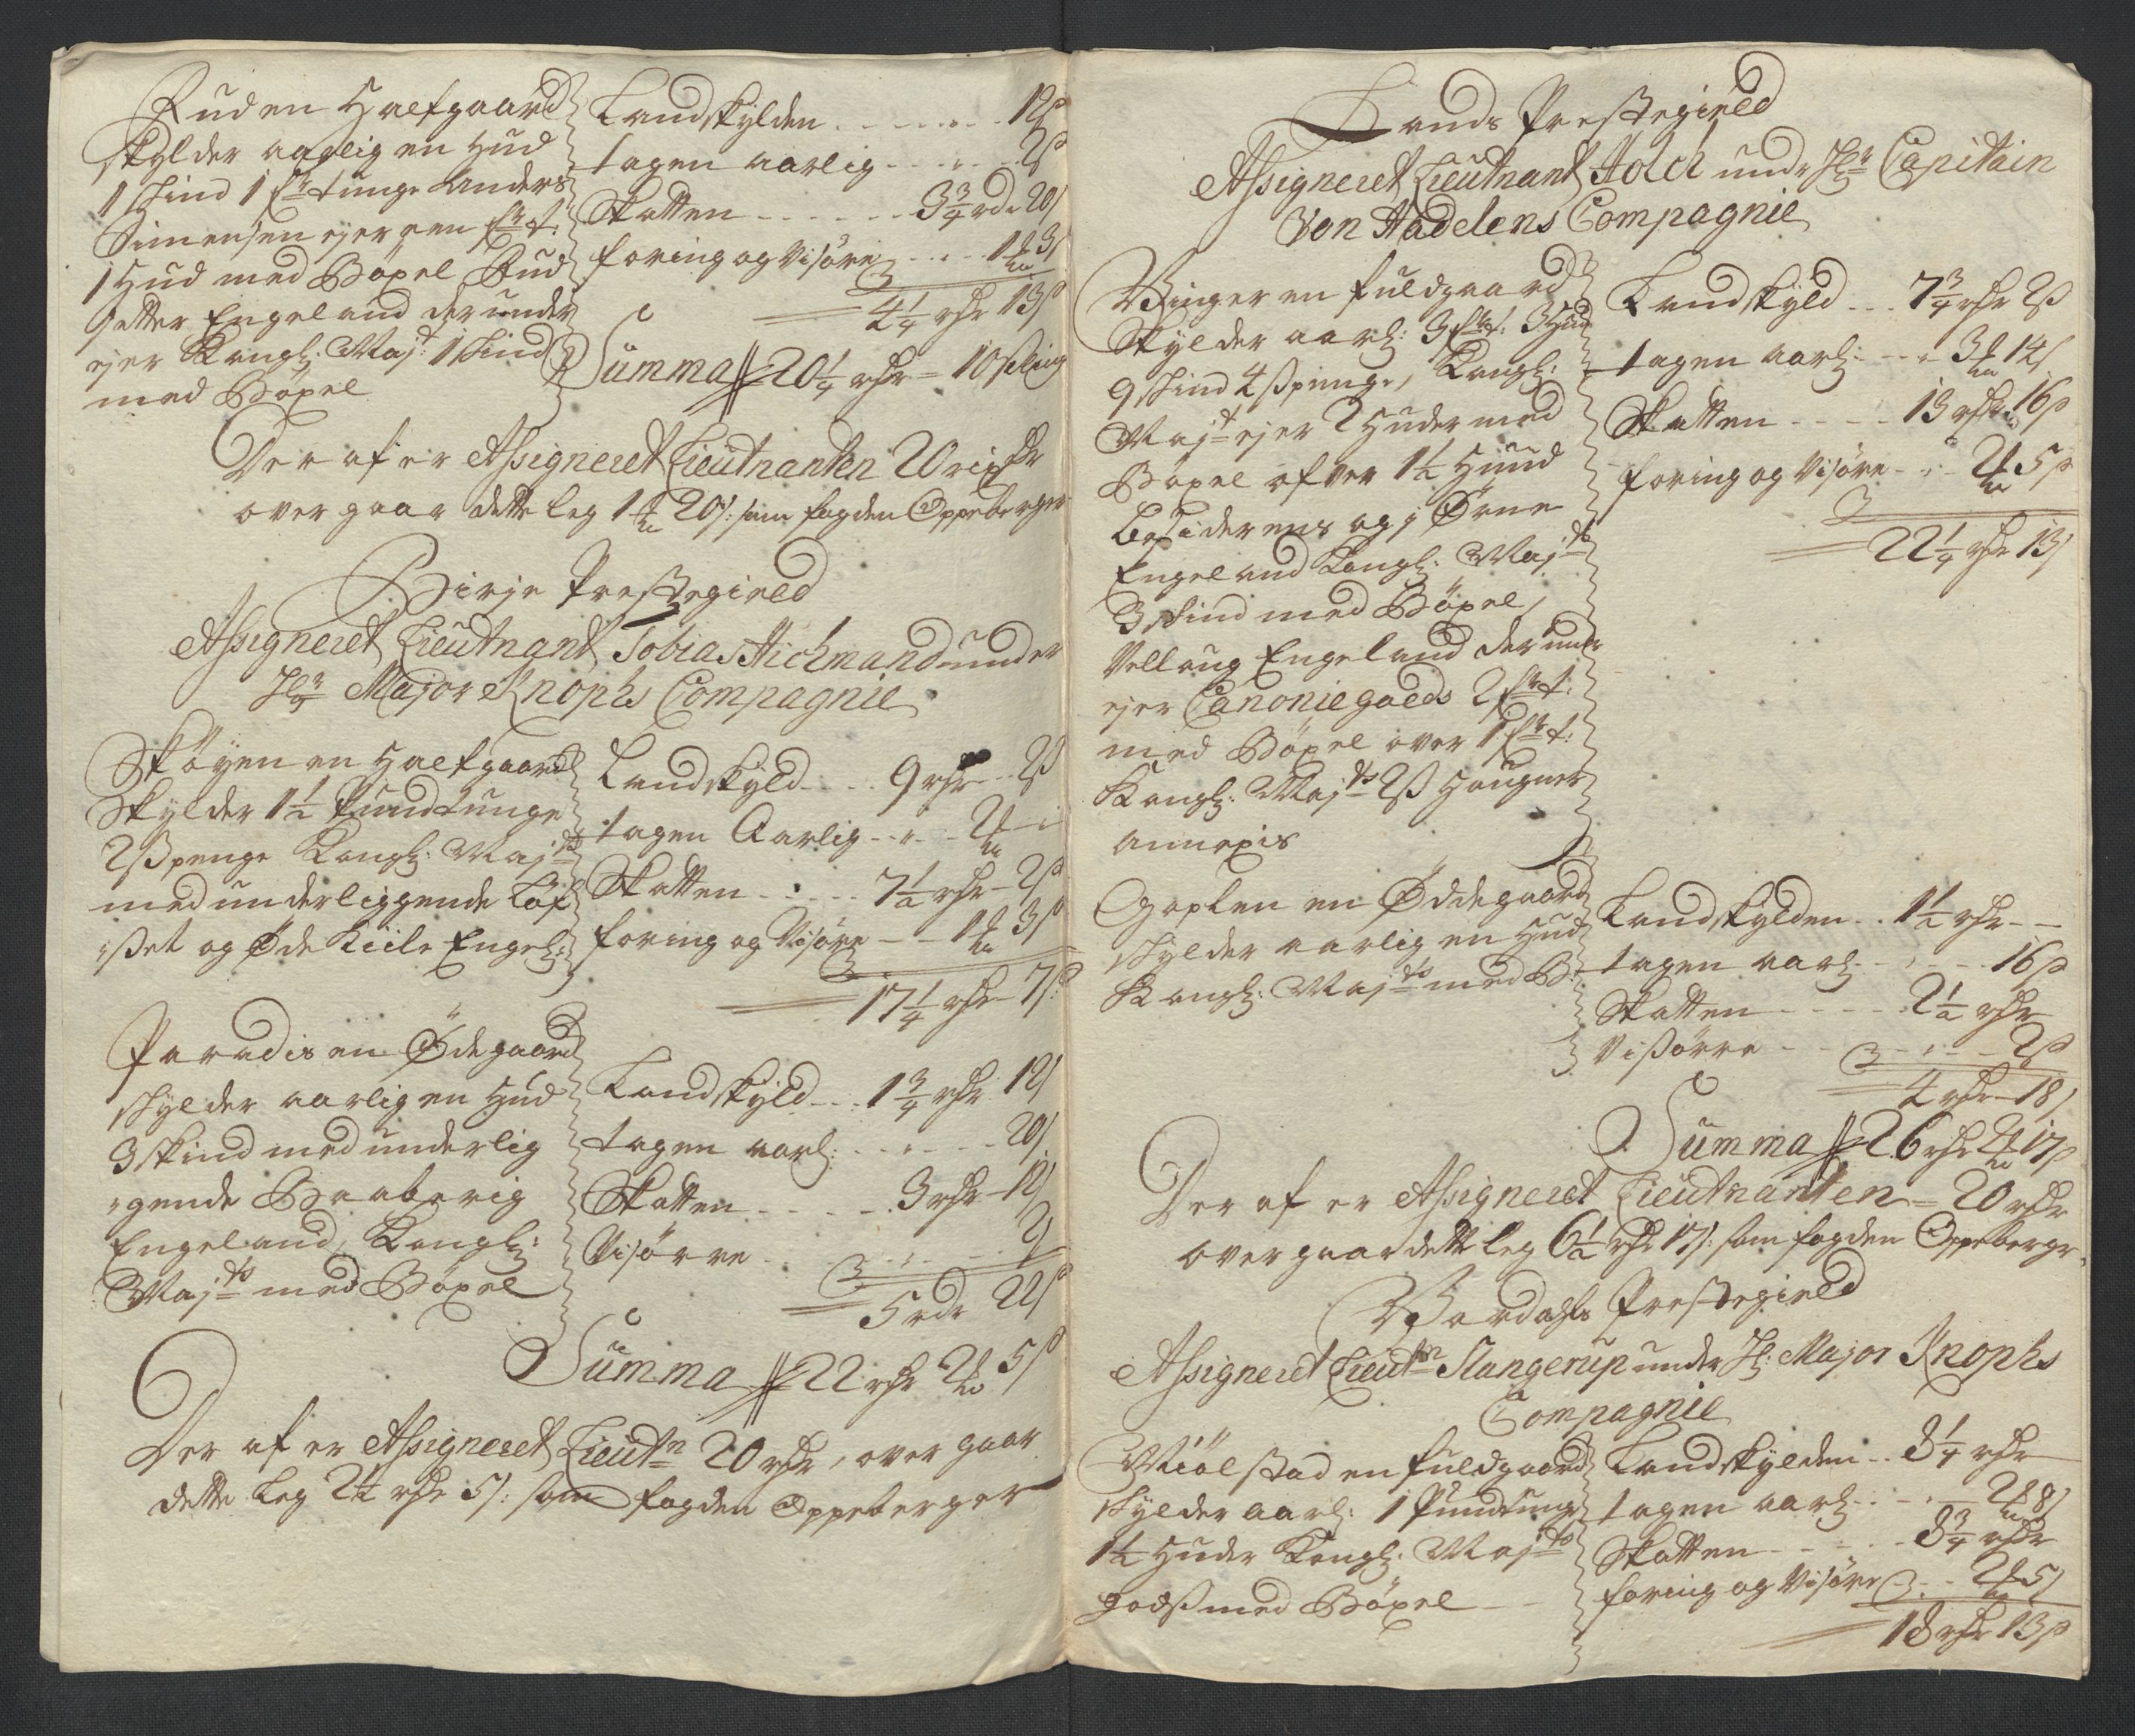 Rud en Halfgaard
skylder aarlig en Hud
1 skind 1 fr: tunge Anders
Simensen ejer een fr: t:
1 Hud med Böxel Rud
sætter Engeland derunder
ejer Kongl: Maj:t 1 skind
med Böxel
Landskylden - - - 12 s
tagen aarlig - - - 2 s
Skatten - - - 3 3/4 rdr 20 s
foring og Visöre - - - 1 1/2 3 s
4 1/4 rdr 13 s
Summa 20 1/4 rdr = 10 skling
Der af er Assigneret Lieutnanten 20 rixdr
over gaar dette leg 1/4 20 s: som fogden Oppeberger
Birje Prestegield
Assigneret Lieutnant Tobias Hichmand under
Hr Major Knophs Compagnie
Sköyen en Halfgaard
Skylder 1 1/2 Pund tunge
2 s penge Kongl: Maj:ts
med underliggende Löf
sset og Öde Kiile Engel:
Landskyld - - - 9 rdr - 2 s
tagen Aarlig - - -
Skatten - - - 7 1/2 rdr - 2 s
foring og Visöre - - 3 s
17 1/4 rdr 7 s
Paradis en Ödegaard
skylder aarlig en Hud
3 skind med underlig
gende Engeland, Kongl:
Maj:ts med Böxel
Landskyld - - - 1 3/4 rdr 12 s
tagen aarl: - - - 20 s
Skatten - - - 3 rdr - 12 s
Visörre - - - 2 s
5 rdr 22 s
Summa 22 rdr 5 s
Der af er Assigneret Lieutn 20 rdr, over gaar
dette leg 2 1/2 rdr 5 s: som fogden Oppeberger
Lands Prestegield
Assigneret Lieutnant Holch under Hr Capitain
Von Hadelens Compagnie
Winger en fuldgaard
Skylder aarl: 3 fr: t: 3 Hud
9 skind 4 s penge, Kongl:
Maj:t ejer 2 Huder med
Böxel ofver 1 1/2 Hund
besiderens og j Örne
Engeland Kongl: Maj:ts
3 skind med Böxel,
Vellaug Engeland derunder
ejer Canonie goeds 2 fr: t:
med Böxel over 1 fr: t:
Kongl: Maj:ts 2 s Haugner
annexis
Landskyld - - - 7 3/4 rdr 2 s
tagen aarl: - - - 14 s
Skatten - - - 13 rdr 16 s
foring og Visöre - - - 5 s
22 1/4 rdr 13 s
Goplen en Öddegaard
skylder aarlig en Hud
Kongl: Maj:ts med B:
Landskylden - - 1 1/2 rdr - -
tagen aarl: - - - 16 s
Skatten - - - 2 1/2 rdr
Vissörre - - - 2 s
4 rdr - 18 s
Summa 26 rdr 17 s
Der af er Assigneret Lieutnanten = 20 rdr
over gaar dette leg 6 1/2 rdr 17 s: som fogden Oppeberger
Wardahls Prestegield
Assigneret Lieutn Slangerup under H: Major Knophs
Compagnie
Miölstad en fuldgaard
skylder aarl: 1 Pund tunge
1 1/2 Huder Kongl: Maj:ts
godss med Böxel
Landskylden - - 8 1/4 rdr
tagen aarl: - - - 8 s
Skatten - - - 8 3/4 rdr
foring og Visöre - - 5 s
18 rdr 13 s